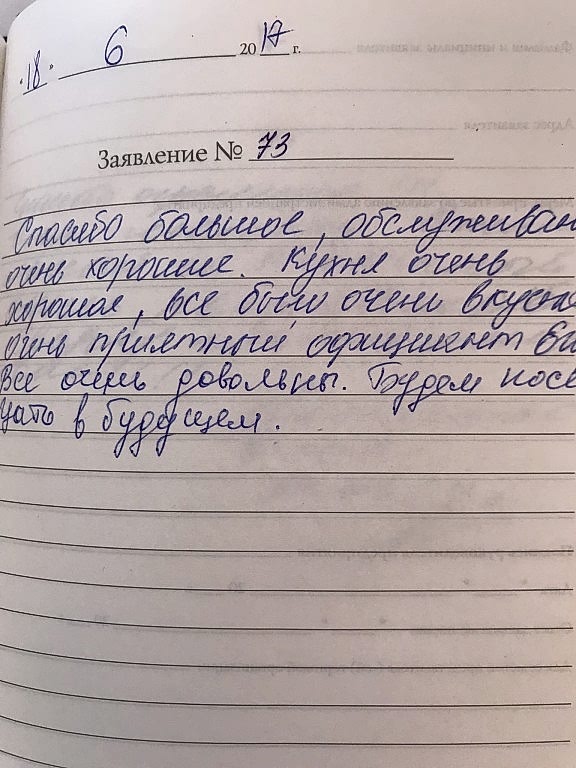 "18" 6 2017 г.
Заявление № 73
Спасибо большое, обслуживан
очень хорошее. Кухня очень
хорошая, все было очень вкусно
очень приятный официант
Все очень довольны. Будем посе
щать в будущем.